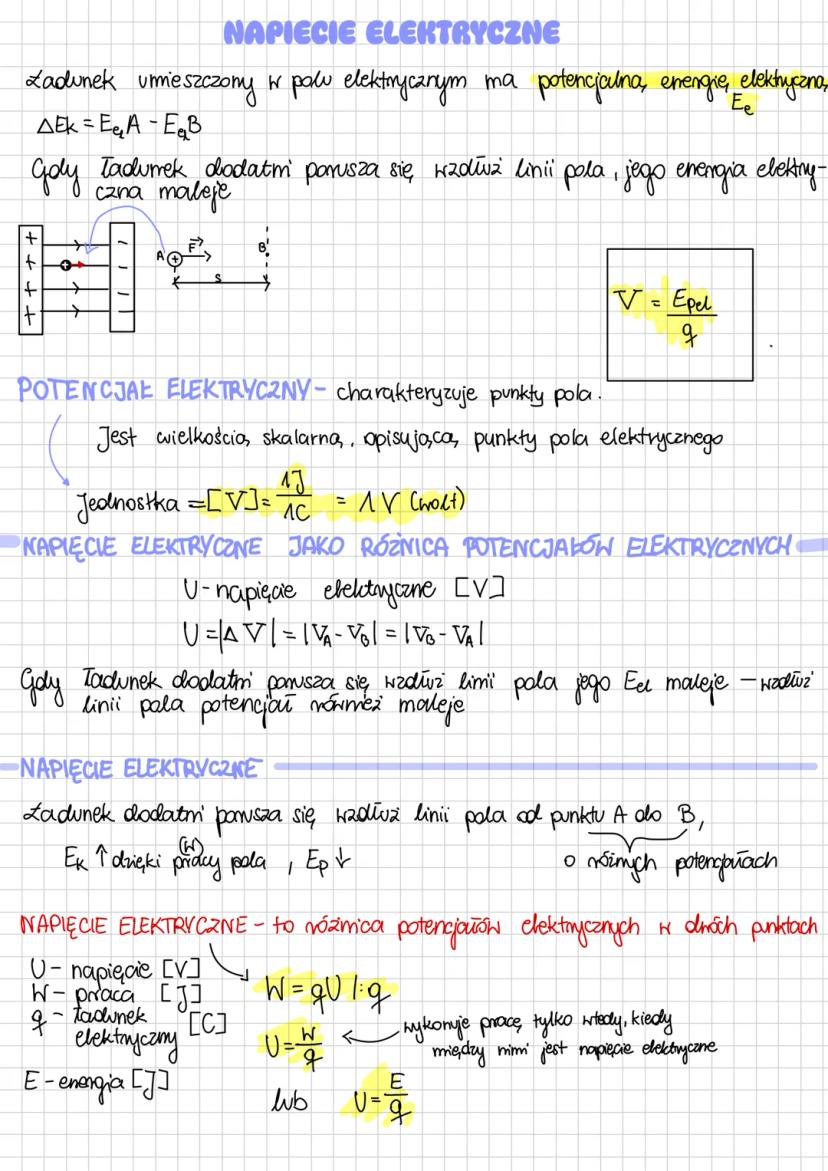 NAPIĘCIE ELEKTRYCZNE
Ładunek umieszczony w polu elektrycznym ma potencjalną energię elektryczną
Ee
ΔEk = EeₗA - EeₗB
Gdy ładunek dodatni porusza się wzdłuż linii pola, jego energia elektry-
czna maleje
+ + + +
- - - -
+
A + F B
s
V = Epel
q
POTENCJAŁ ELEKTRYCZNY - charakteryzuje punkty pola.
Jest wielkością skalarną, opisującą punkty pola elektrycznego
Jednostka = [V] = 1J/1C = 1V (wolt)
NAPIĘCIE ELEKTRYCZNE JAKO RÓŻNICA POTENCJAŁÓW ELEKTRYCZNYCH
U - napięcie elektryczne [V]
U = |ΔV| = |VA - VB| = |VB - VA|
Gdy ładunek dodatni porusza się wzdłuż linii pola jego Eel maleje - wzdłuż
linii pola potencjał również maleje
NAPIĘCIE ELEKTRYCZNE
Ładunek dodatni porusza się wzdłuż linii pola od punktu A do B,
(W)
EK ↑ dzięki pracy pola , Ep ↓ o różnych potencjałach
NAPIĘCIE ELEKTRYCZNE - to różnica potencjałów elektrycznych w dwóch punktach
U - napięcie [V]
W - praca [J]
q - ładunek
elektryczny [C]
E - energia [J]
W = qU |:q
U = W/q
wykonuje pracę tylko wtedy, kiedy
między nimi jest napięcie elektryczne
lub U = E/q